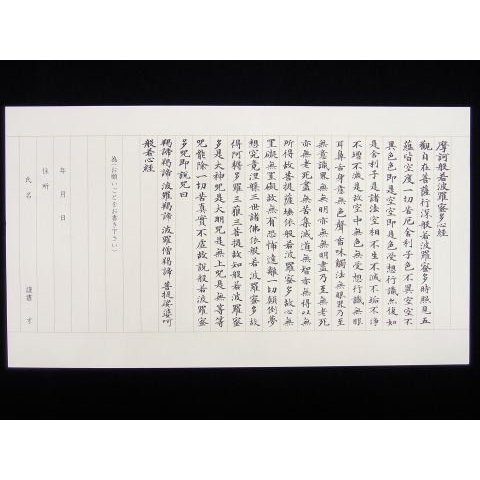 摩訶般若波羅蜜多心経
観自在菩薩行深般若波羅蜜多時照見五
蘊皆空度一切苦厄舎利子色不異空空不
異色色即是空空即是色受想行識亦復如
是舎利子是諸法空相不生不滅不垢不浄
不増不減是故空中無色無受想行識無眼
耳鼻舌身意無色聲香味觸法無眼界乃至
無意識界無無明亦無無明盡乃至無老死
亦無老死盡無苦集滅道無智亦無得以無
所得故菩提薩埵依般若波羅蜜多故心無
罣礙無罣礙故無有恐怖遠離一切顛倒夢
想究竟涅槃三世諸佛依般若波羅蜜多故
得阿耨多羅三藐三菩提故知般若波羅蜜
多是大神呪是大明呪是無上呪是無等等
呪能除一切苦真實不虚故説般若波羅蜜
多呪即説呪曰
羯諦羯諦 波羅羯諦 波羅僧羯諦 菩提娑婆呵
般若心経
為(お願いごとをお書き下さい)
年 月 日
住所
氏名 謹書